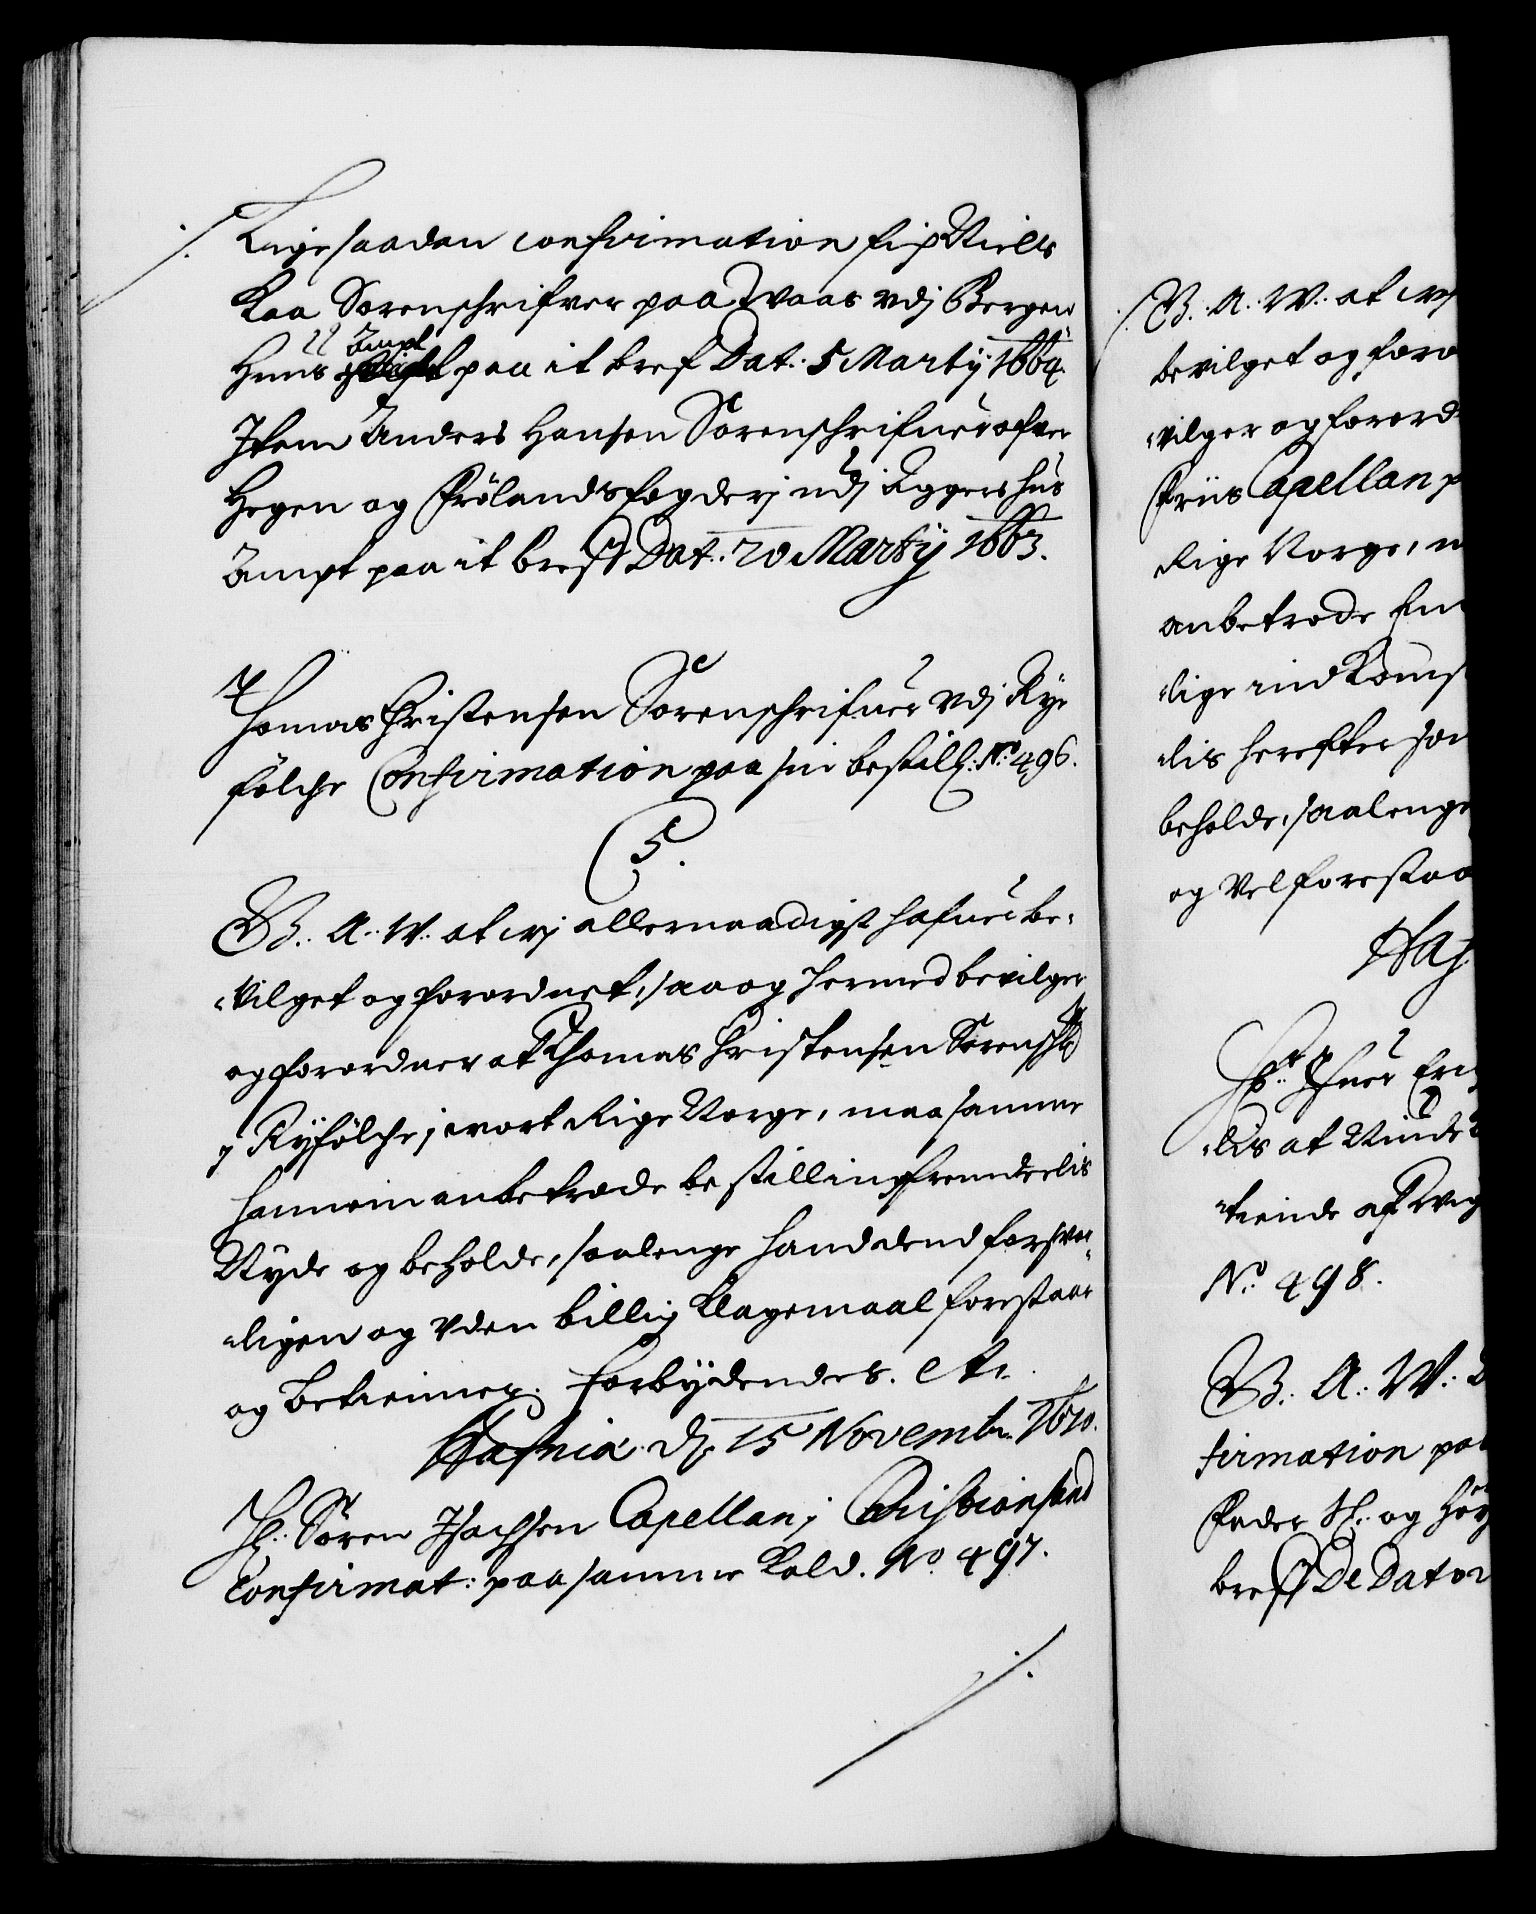 Lige saadan confirmation fich Niels
Kaa Sorenschrifver paa Waas vdj Bergen
Huus Ampt paa it bref Dat: 5 Martij 1664.
Item Anders Hansen Sorenschrifuer ofver
Hegen og Frölands fogderj udj Aggershus
Ampt paa it breff Dat: 20 Martij 1663.
Thomas Christensen Sorenschrifuer vdj Rye
fölche Confirmation paa sin bestill: No: 496.
C 5.
G. A. W. at wj allernaadigst hafuer be-
vilget og forordnet, saa og hermed bevilger
og forordner at Thomas Christensen Sorenschr
j Ryfölche j vort Rige Norge, maa samme
hannem anbetrode bestilling fremdeelis
Nyde og beholde, saalenge hand dend forsvar-
ligen og vden billig Klagemaal forestaar
og betiener. Forbydendes. etc.
Hafnia. d. 15 Novembr. 1670.
Hr. Sören Isachsen Capellan j Christiansand
Confirmat: paa samme Kald. No 497.
G. A. W. at wj
bevilget og foro
vilger og forord
Friis Capellan p
Rige Norge, m
anbetrode Em
lige indKomst
lis herefter som
beholde, saalenge
og Vel forestaa
Haf
Hr. Ifuer Eri
lis at Nyde
tiende af
No. 498.
G. A. W.
firmation paa
Fader Sl. og Höy
breff De Dato